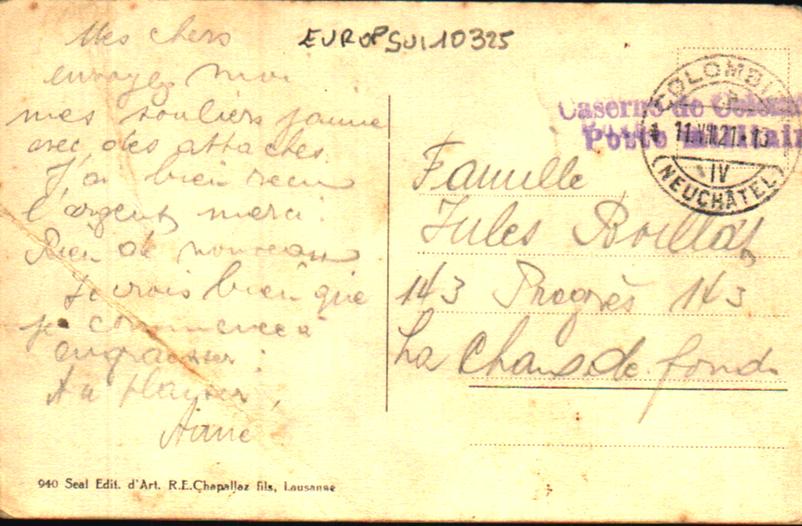 EUROPSUI10325
Mes chers
envoyez moi
mes souliers jaune
avec des attaches.
J'ai bien recu
l'argent merci.
Rien de nouveau
Je crois bien que
je commence à
engraisser.
Au plaisir,
COLOMBIE
11.VIII.21.-13
IV
(NEUCHÂTEL)
Caserne de Colom
Poste militai
Famille
Jules Boillat
143 Progrès 143
La Chaux de fonds
940 Seal Edit. d'Art. R.E.Chapallaz fils, Lausanne